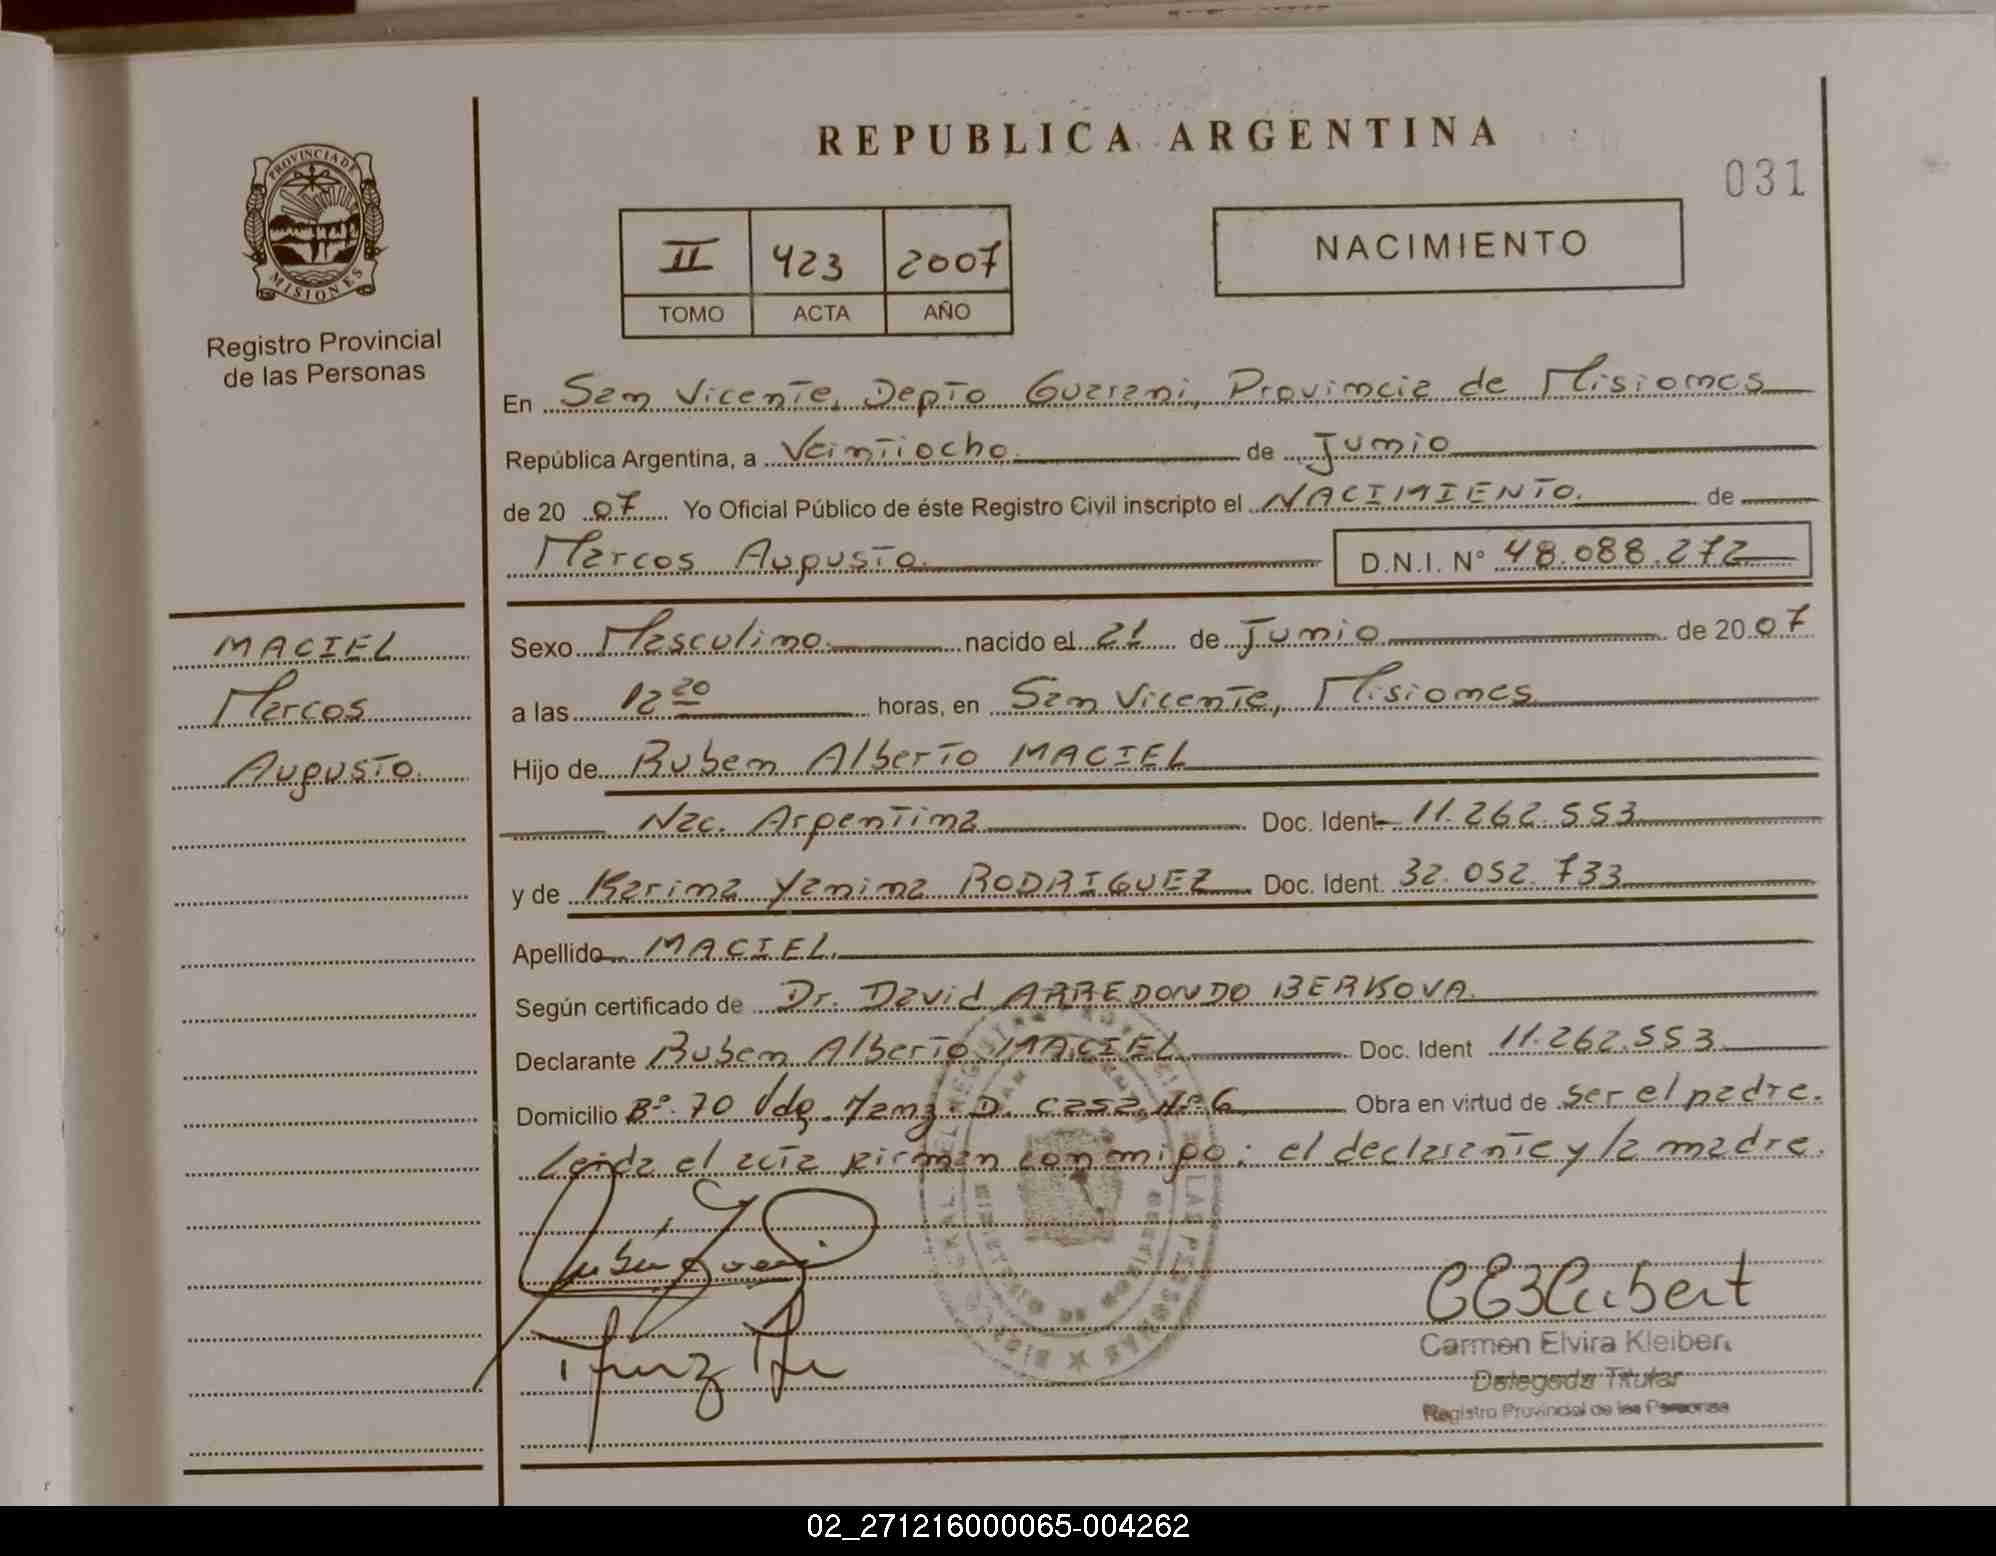 REPUBLICA ARGENTINA
031
PROVINCIA DE
MISIONES
Registro Provincial
de las Personas
II 423 2007
TOMO ACTA AÑO
NACIMIENTO
En San Vicente, Depto Guarani, Provincia de Misiones
República Argentina, a Veintiocho de Junio
de 20 07 Yo Oficial Público de éste Registro Civil inscripto el NACIMIENTO. de
Marcos Augusto. D.N.I. N° 48.088.272
MACIEL
Marcos
Augusto.
Sexo Masculino. nacido el 21 de Junio de 20 07
a las 12 20 horas, en San Vicente, Misiones
Hijo de Ruben Alberto MACIEL
Nac. Argentina Doc. Ident 11.262.553
y de Karina Yanina RODRIGUEZ Doc. Ident. 32.052.733
Apellido MACIEL.
Según certificado de Dr. David ARREDONDO BERKOVA.
Declarante Ruben Alberto MACIEL Doc. Ident 11.262.553
Domicilio B° 70 Vdas. Manz. D. casa N° 6 Obra en virtud de ser el padre.
Leida el acta firman conmigo: el declarante y la madre.
Carmen Elvira Kleibert
Delegada Titular
Registro Provincial de las Personas
02_271216000065-004262